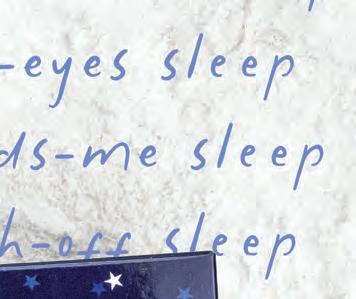 -eyes sleep
ds-me sleep
h-off sleep